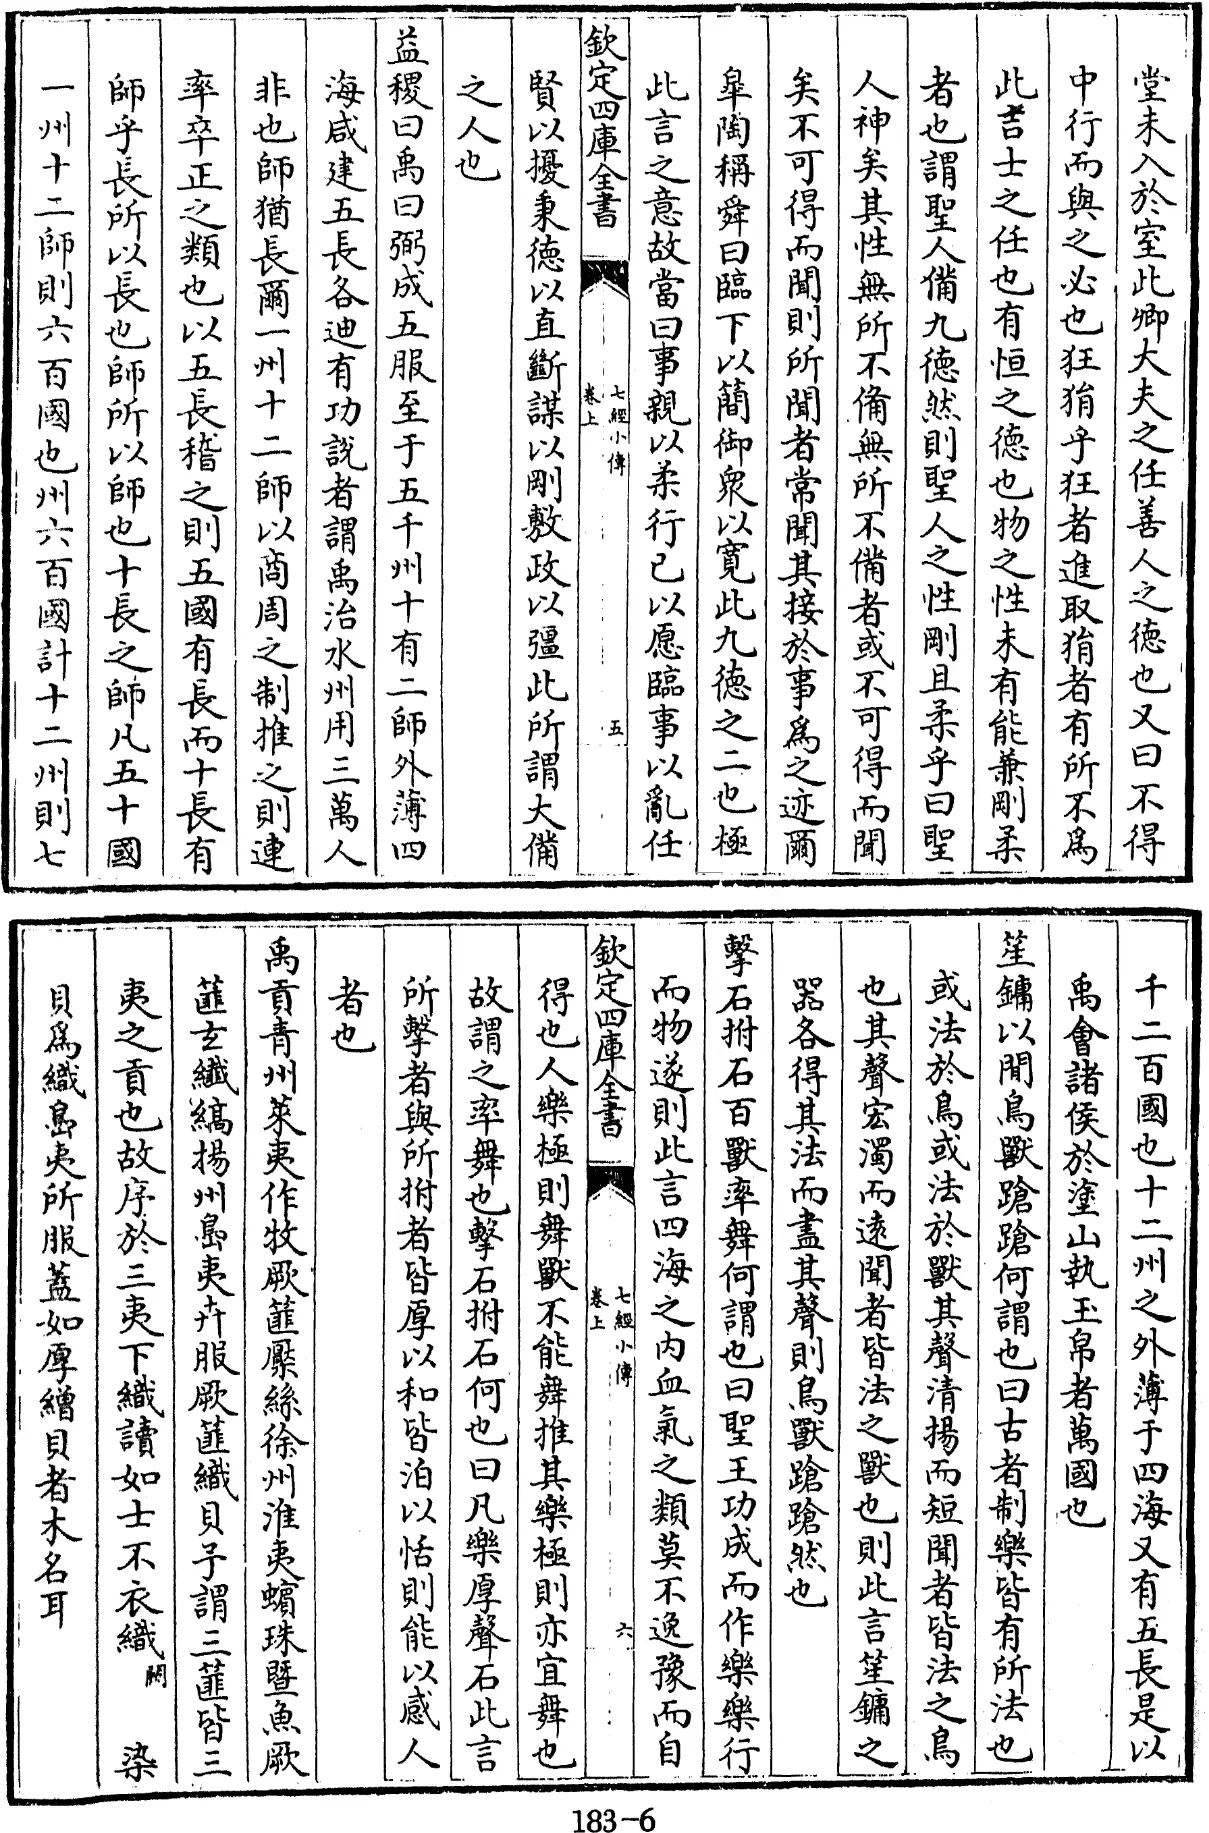 堂未入於室此卿大夫之任善人之德也又曰不得
中行而與之必也狂狷乎狂者進取狷者有所不爲
此吉士之任也有恒之德也物之性未有能兼剛柔
者也謂聖人備九德然則聖人之性剛且柔乎曰聖
人神矣其性無所不備無所不備者或不可得而聞
矣不可得而聞則所聞者常聞其接於事爲之迹爾
臯陶稱舜曰臨下以簡御衆以寛此九德之二也極
此言之意故當曰事親以柔行已以愿臨事以亂任
欽定四庫全書
七經小傳
卷上
五
賢以擾秉德以直斷謀以剛敷政以彊此所謂大備
之人也
益稷曰禹曰弼成五服至于五千州十有二師外薄四
海咸建五長各迪有功説者謂禹治水州用三萬人
非也師猶長爾一州十二師以商周之制推之則連
率卒正之類也以五長稽之則五國有長而十長有
師乎長所以長也師所以師也十長之師凡五十國
一州十二師則六百國也州六百國計十二州則七
千二百國也十二州之外薄于四海又有五長是以
禹會諸侯於塗山執玉帛者萬國也
笙鏞以間鳥獸蹌蹌何謂也曰古者制樂皆有所法也
或法於鳥或法於獸其聲清揚而短聞者皆法之鳥
也其聲宏濁而遠聞者皆法之獸也則此言笙鏞之
器各得其法而盡其聲則鳥獸蹌蹌然也
擊石拊石百獸率舞何謂也曰聖王功成而作樂樂行
而物遂則此言四海之内血氣之類莫不逸豫而自
欽定四庫全書
七經小傳
卷上
六
得也人樂極則舞獸不能舞推其樂極則亦宜舞也
故謂之率舞也擊石拊石何也曰凡樂厚聲石此言
所擊者與所拊者皆厚以和皆泊以恬則能以感人
者也
禹貢青州萊夷作牧厥篚檿絲徐州淮夷蠙珠曁魚厥
篚玄纎縞揚州島夷卉服厥篚織貝予謂三篚皆三
夷之貢也故序於三夷下織讀如士不衣織闕 染
貝爲織島夷所服蓋如厚繒貝者木名耳
183-6